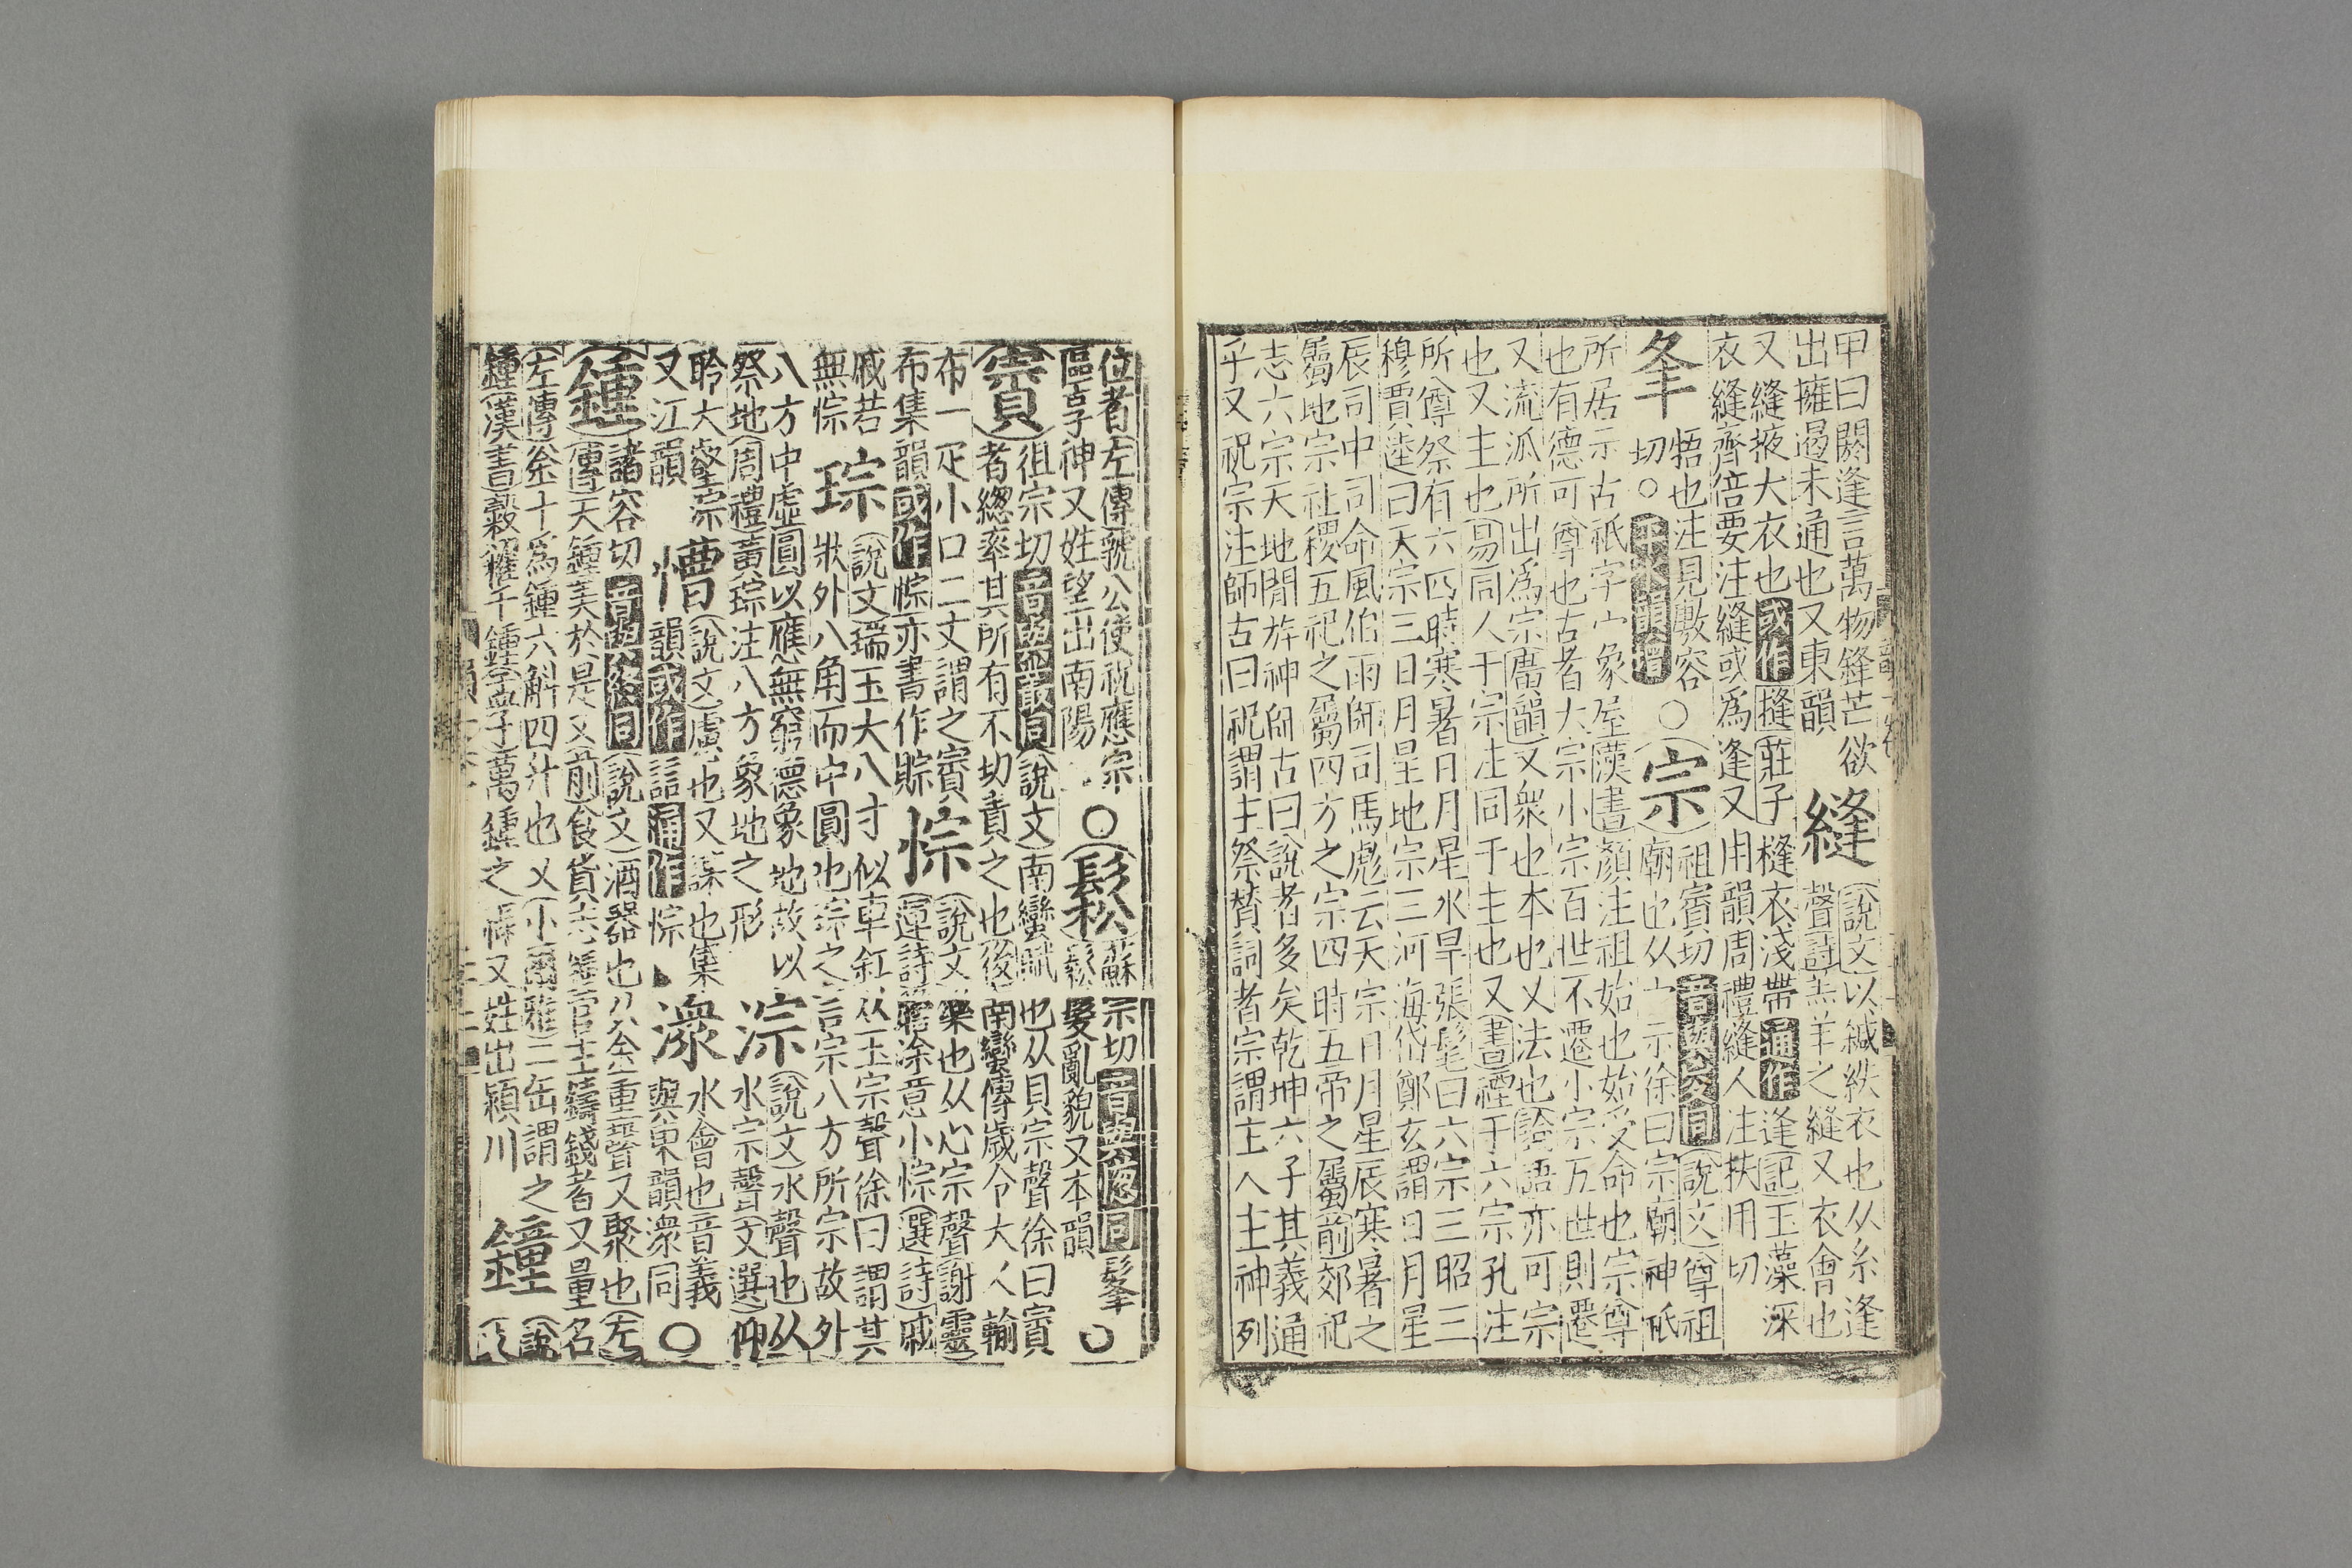 甲曰閼逢言萬物鋒芒欲
出擁遏未通也又東韻
縫
說文以緘紩衣也从糸逢
聲詩羔羊之縫又衣會也
又縫掖大衣也或作摓莊子縫衣淺帶通作逢記玉藻深
衣縫齊倍要注縫或爲逢又用韻周禮縫人注扶用切
夆
牾也注見敷容
切○平水韻增
○宗
祖賨切音與公同說文尊祖
廟也从宀示徐曰宗廟神祇
所居示古祇字宀象屋漢書顏注祖始也始受命也宗尊
也有德可尊也古者大宗小宗百世不遷小宗五世則遷
又流派所出爲宗廣韻又衆也本也又法也論語亦可宗
也又主也易同人于宗注同于主也又書禋于六宗孔注
所尊祭有六四時寒暑日月星水旱張髦曰六宗三昭三
穆賈逵曰天宗三日月星地宗三河海岱鄭玄謂日月星
辰司中司命風伯雨師司馬彪云天宗日月星辰寒暑之
屬地宗社稷五祀之屬四方之宗四時五帝之屬前郊祀
志六宗天地閒游神師古曰說者多矣乾坤六子其義通
乎又祝宗注師古曰祝謂主祭贊詞者宗謂主人主神列
位者左傳虢公使祝應宗
區享神又姓望出南陽
○鬆
蘇宗切音與同髼
鬆髮亂貌又本韻
○
賨
徂宗切音與叢同說文南蠻賦也从貝宗聲徐曰賨
者總率其所有不切責之也後南蠻傳歲令大人輸
布一疋小口二丈謂之賨
布集韻或作悰亦書作賩
悰
說文樂也从心宗聲謝靈
運詩塗意小悰選詩戚
戚苦
無悰
琮
說文瑞玉大八寸似車釭从玉宗聲徐曰謂其
狀外八角而中圓也琮之言宗八方所宗故外
八方中虛圓以應無窮德象地故以
祭地周禮黃琮注八方象地之形
淙
說文水聲也从
水宗聲文選仰
聆大壑淙
又江韻
慒
說文慮也又謀也集
韻或作誴通作悰
潨
水會也音義
與東韻潨同
○
鍾
諸容切音與終同說文酒器也从金重聲又聚也左
傳天鍾美於是又前食貨志鍾官主鑄錢者又量名
左傳釜十爲鍾六斛四斗也又小爾雅二缶謂之
鍾漢書穀糴千鍾孟子萬鍾之又姓出潁川
鐘
說